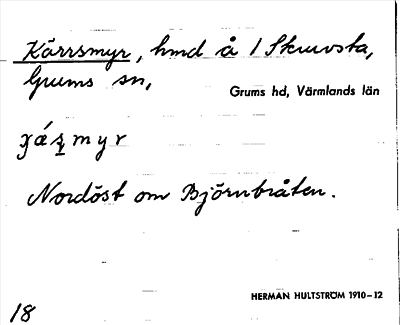 Kärrsmyr, hmd å 1 Skruvsta,
Grums sn,
Grums hd, Värmlands län
myr
Nordöst om Björnbråten.
HERMAN HULTSTRÖM 1910–12
18